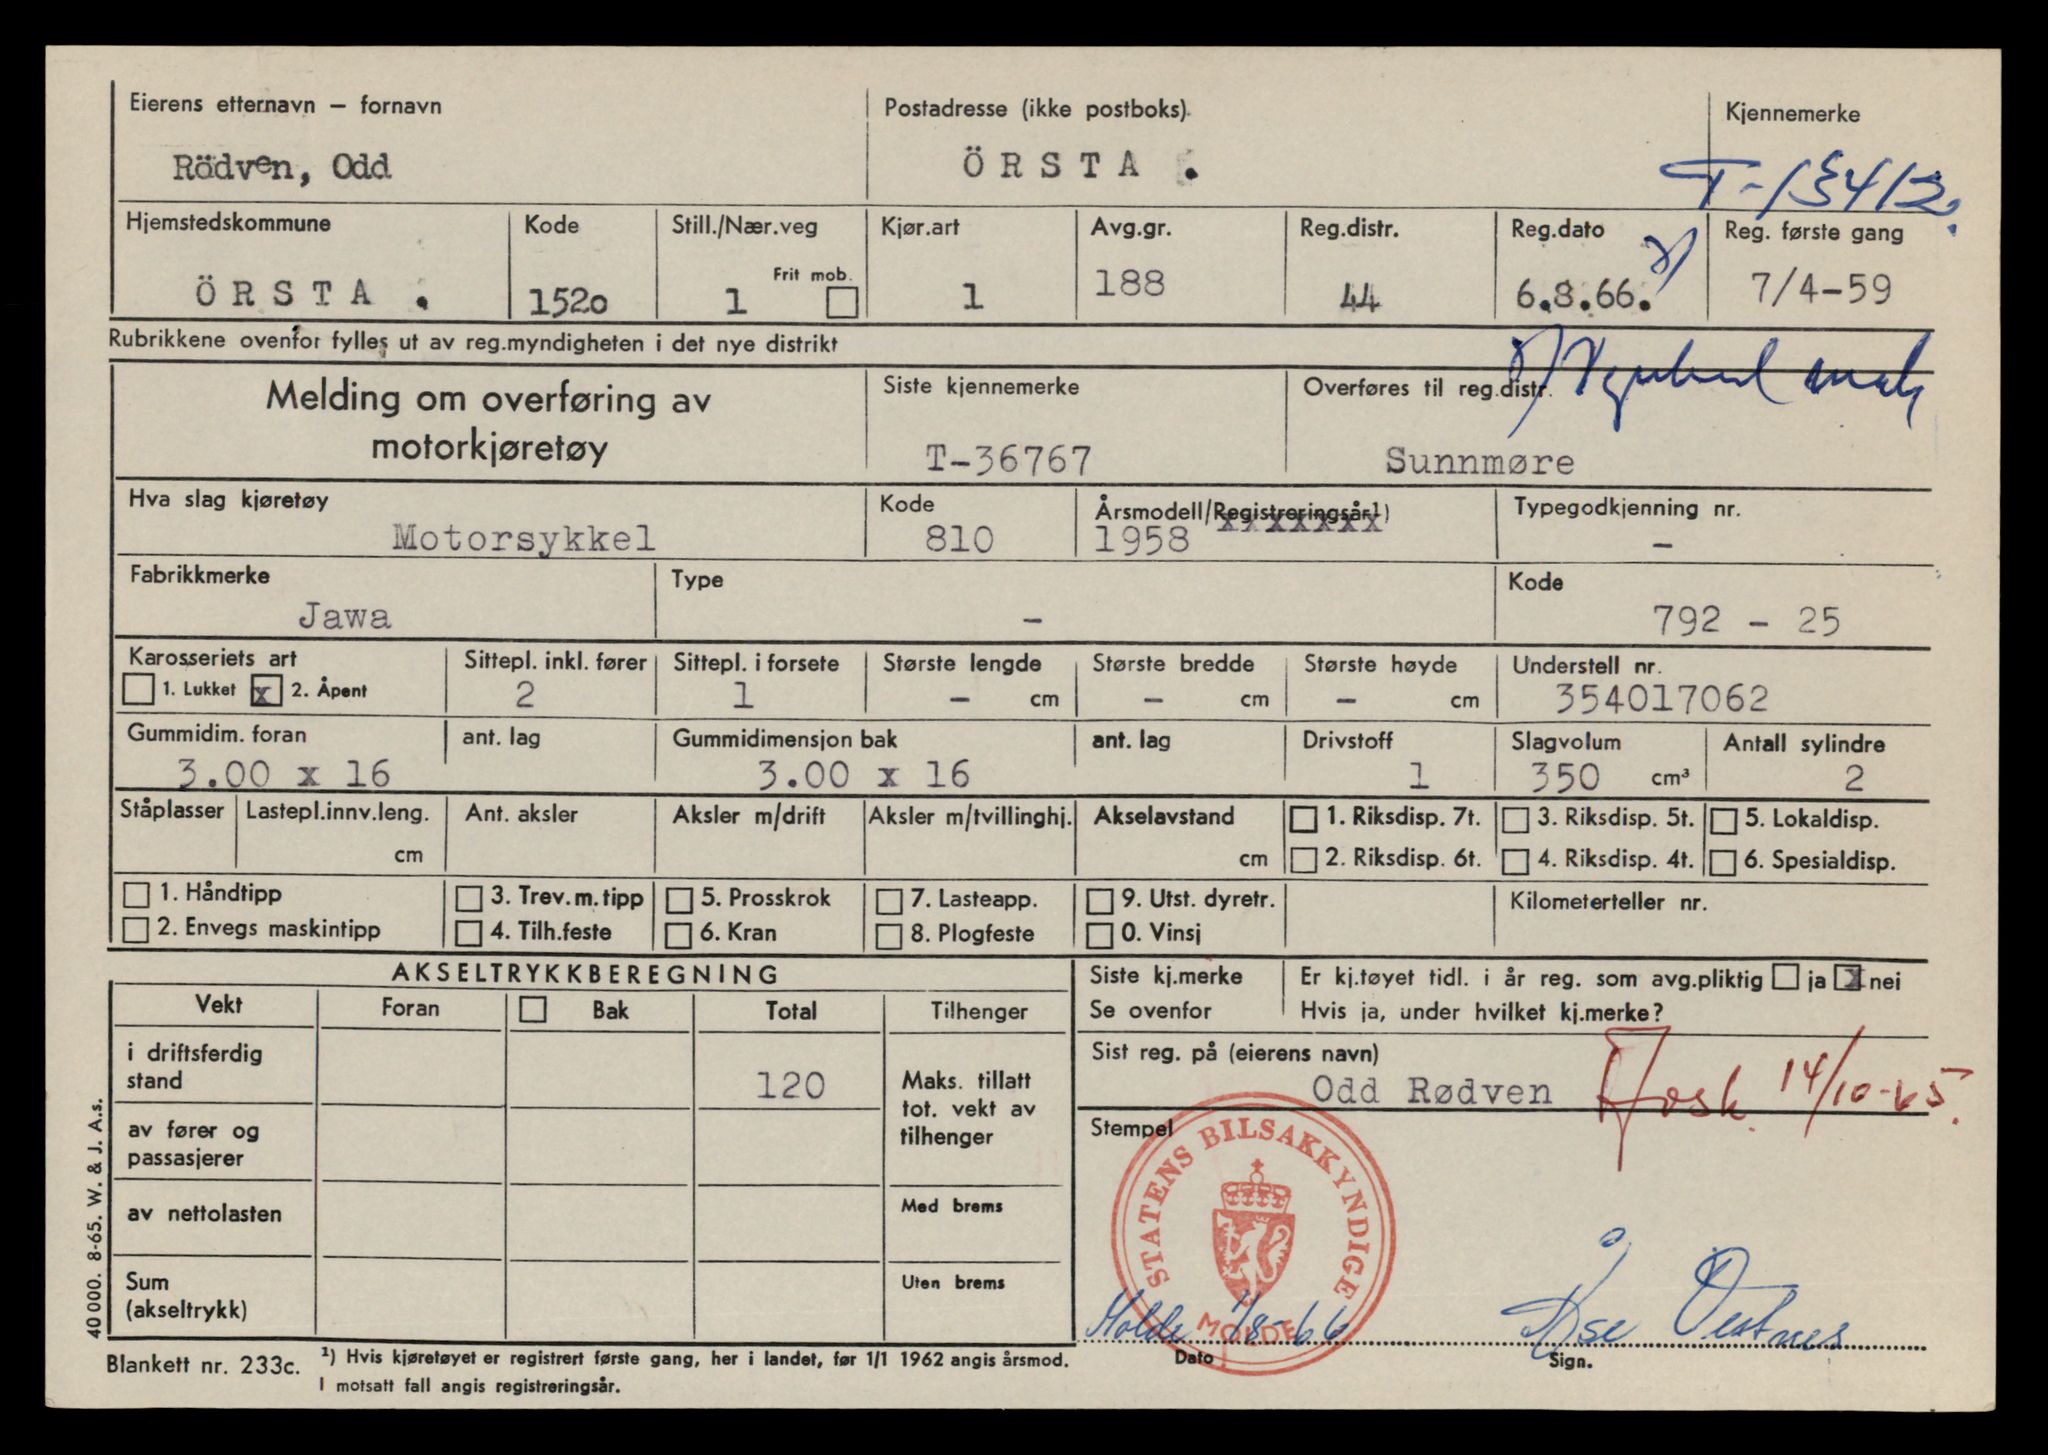 Eierens etternavn – fornavn
Rödven, Odd
Postadresse (ikke postboks).
ÖRSTA .
Kjennemerke
Hjemstedskommune
ÖRSTA .
Kode
1520
Still./Nær.veg
Frit mob.
1
Kjør.art
1
Avg.gr.
188
Reg.distr.
44
Reg.dato
6.8.66.
Reg. første gang
7/4-59
Rubrikkene ovenfor fylles ut av reg.myndigheten i det nye distrikt
Melding om overføring av
motorkjøretøy
Siste kjennemerke
T-36767
Overføres til reg.distr.
Sunnmøre
Hva slag kjøretøy
Motorsykkel
Kode
810
Årsmodell/Registreringsår¹)
1958 xxxxxxx
Typegodkjenning nr.
–
Fabrikkmerke
Jawa
Type
–
Kode
792 – 25
Karosseriets art
1. Lukket x 2. Åpent
Sittepl. inkl. fører
2
Sittepl. i forsete
1
Største lengde
– cm
Største bredde
– cm
Største høyde
– cm
Understell nr.
354017062
Gummidim. foran
3.00 x 16
ant. lag
Gummidimensjon bak
3.00 x 16
ant. lag
Drivstoff
1
Slagvolum
350 cm³
Antall sylindre
2
Ståplasser
Lastepl.innv.leng.
cm
Ant. aksler
Aksler m/drift
Aksler m/tvillinghj.
Akselavstand
cm
1. Riksdisp. 7t.
2. Riksdisp. 6t.
3. Riksdisp. 5t.
4. Riksdisp. 4t.
5. Lokaldisp.
6. Spesialdisp.
1. Håndtipp
2. Envegs maskintipp
3. Trev.m.tipp
4. Tilh.feste
5. Prosskrok
6. Kran
7. Lasteapp.
8. Plogfeste
9. Utst. dyretr.
0. Vinsj
Kilometerteller nr.
AKSELTRYKKBEREGNING
Vekt
Foran
Bak
Total
Tilhenger
i driftsferdig
stand
120
Maks. tillatt
tot. vekt av
tilhenger
av fører og
passasjerer
av nettolasten
Med brems
Sum
(akseltrykk)
Uten brems
Siste kj.merke
Se ovenfor
Er kj.tøyet tidl. i år reg. som avg.pliktig ja x nei
Hvis ja, under hvilket kj.merke?
Sist reg. på (eierens navn)
Odd Rødven
14/10-65.
Stempel
STATENS BILSAKKYNDIGE
MOLDE
Molde 1/8-66
Åse Vestnes
Dato
Sign.
40 000. 8-65. W. & J. A.s.
Blankett nr. 233c.
¹) Hvis kjøretøyet er registrert første gang, her i landet, før 1/1 1962 angis årsmod.
I motsatt fall angis registreringsår.